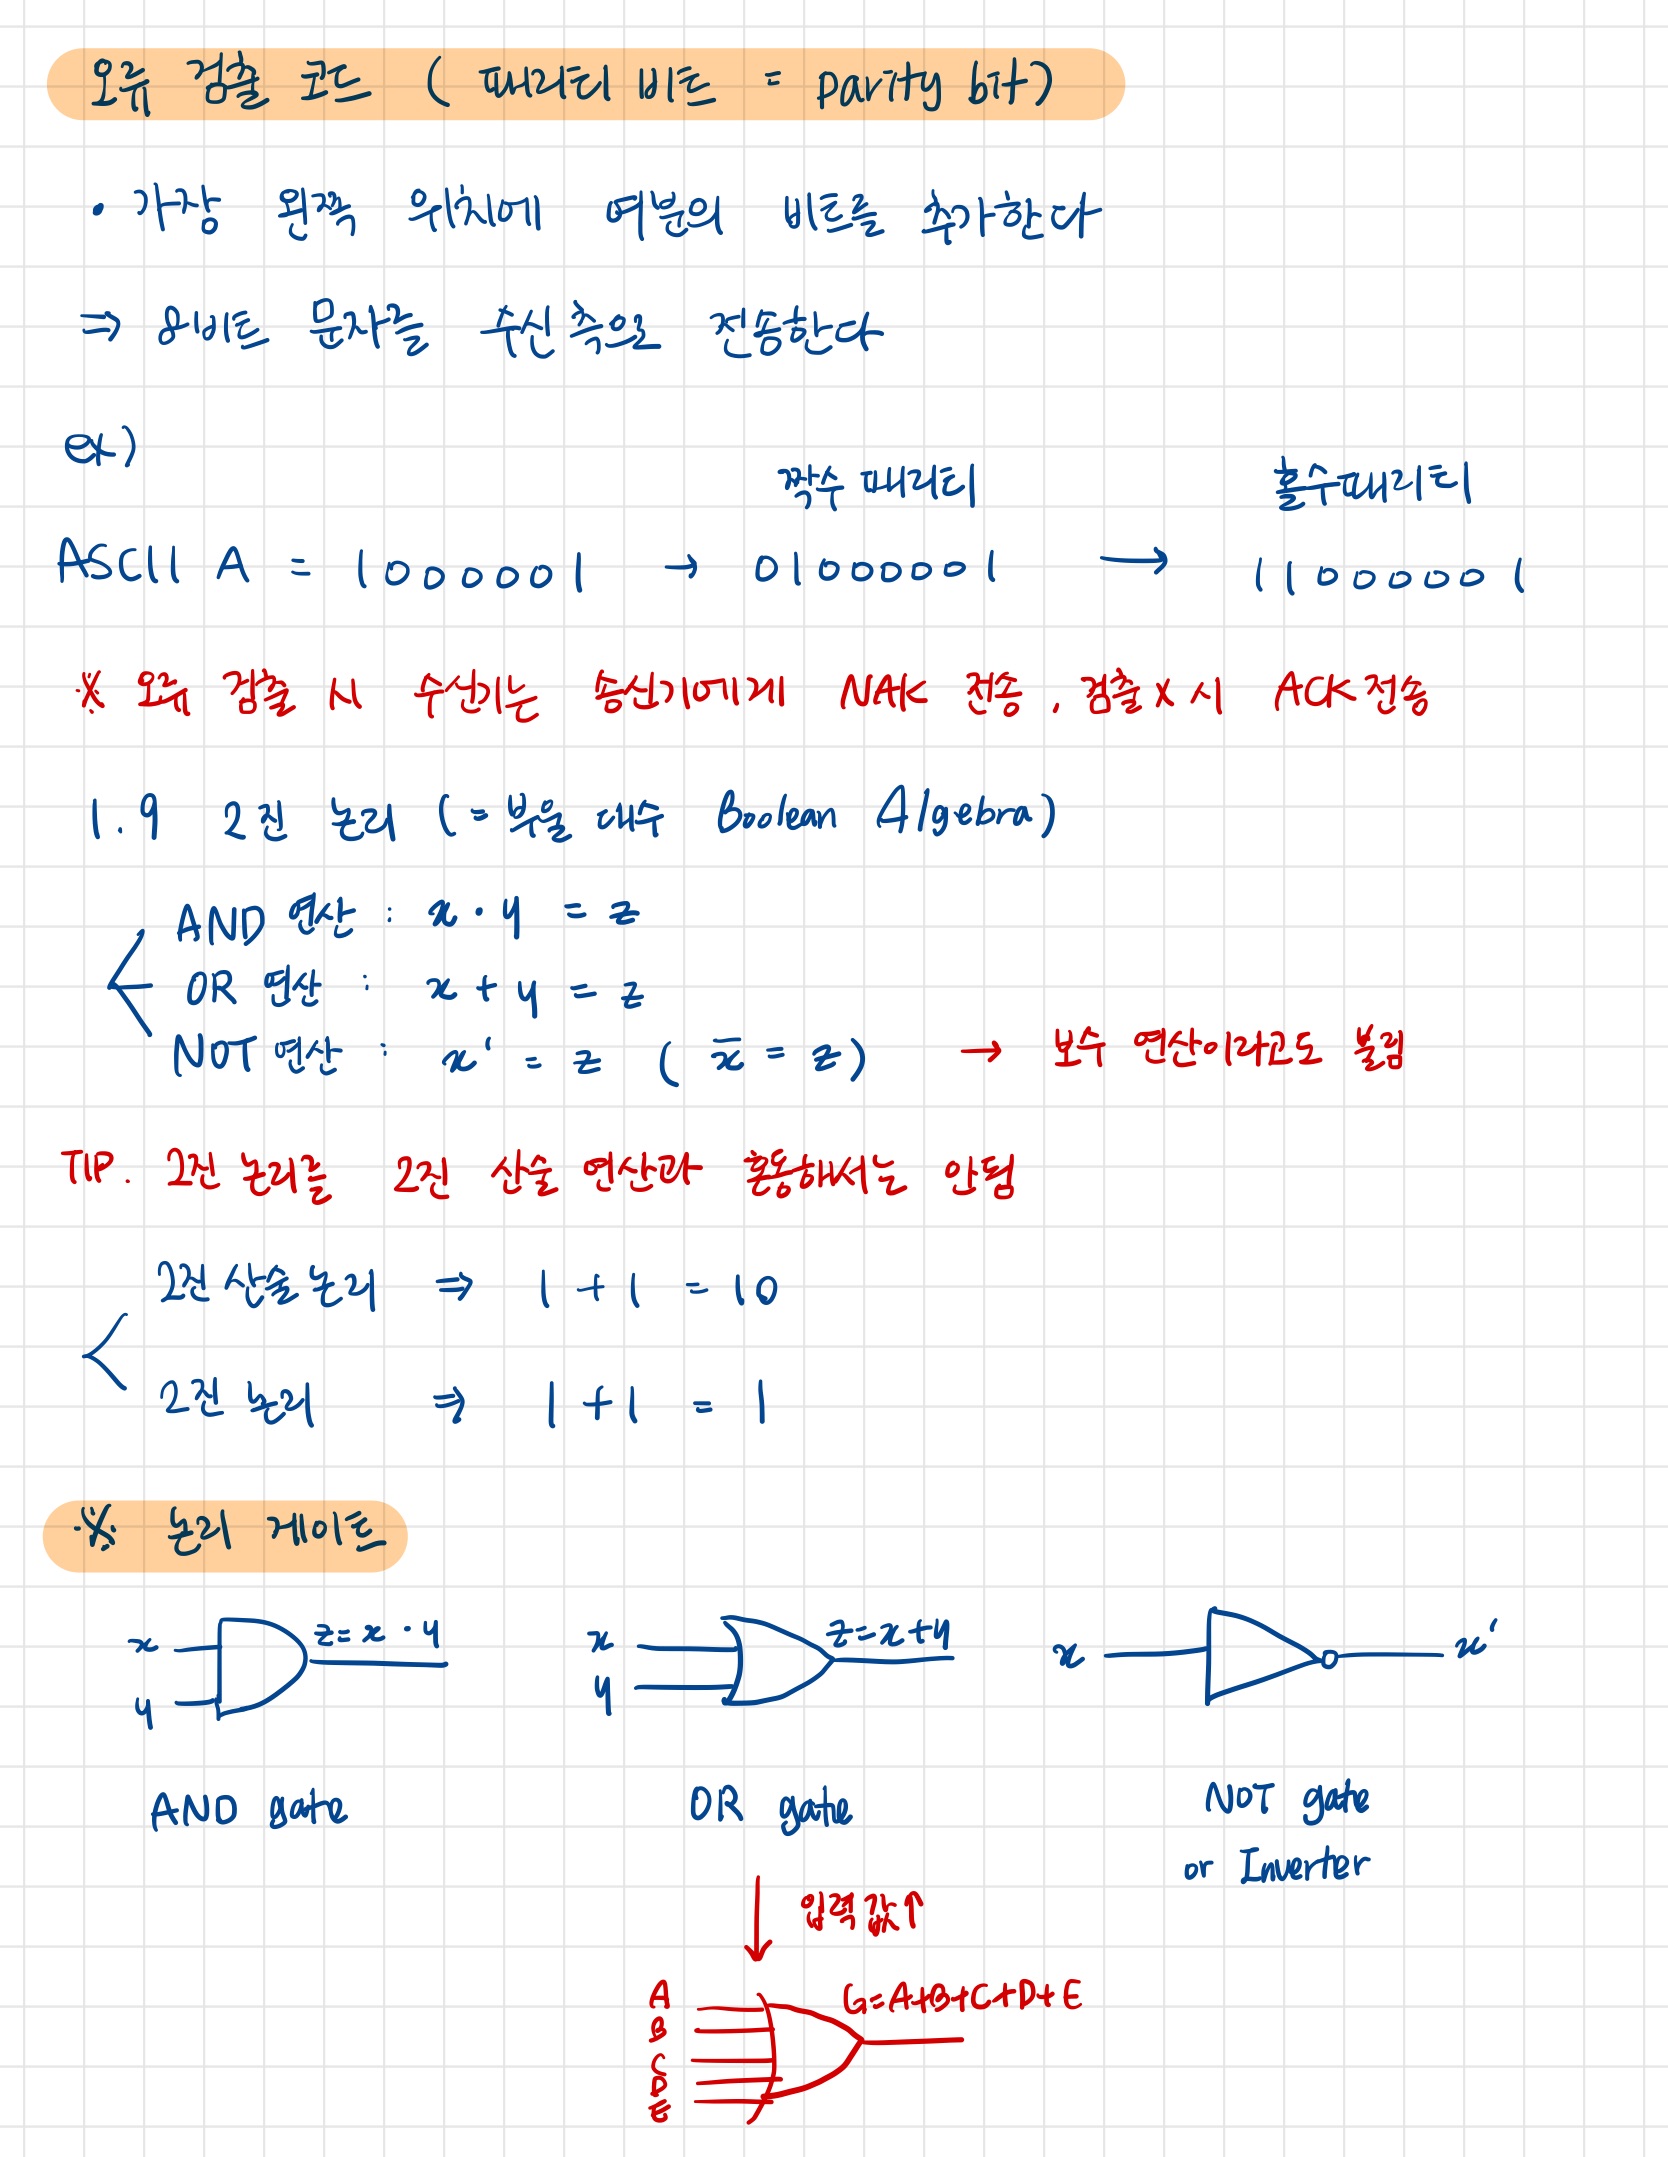 오류 검출 코드 ( 패리티 비트 = parity bit)
• 가장 왼쪽 위치에 여분의 비트를 추가한다
⇒ 8비트 문자를 수신측으로 전송한다
ex)
짝수 패리티 홀수패리티
ASCII A = 1000001 → 01000001 → 11000001
※ 오류 검출 시 수신기는 송신기에게 NAK 전송, 검출 x 시 ACK 전송
1.9 2진 논리 (= 부울 대수 Boolean Algebra)
AND 연산 : x · y = z
OR 연산 : x + y = z
NOT 연산 : x' = z ( x̅ = z) → 보수 연산이라고도 불림
TIP. 2진 논리를 2진 산술 연산과 혼동해서는 안됨
2진 산술논리 ⇒ 1 + 1 = 10
2진 논리 ⇒ 1 + 1 = 1
※ 논리 게이트
x z = x · y x z = x + y x x'
y y
AND gate OR gate NOT gate
or Inverter
↓ 입력 값↑
A G=A+B+C+D+E
B
C
D
E